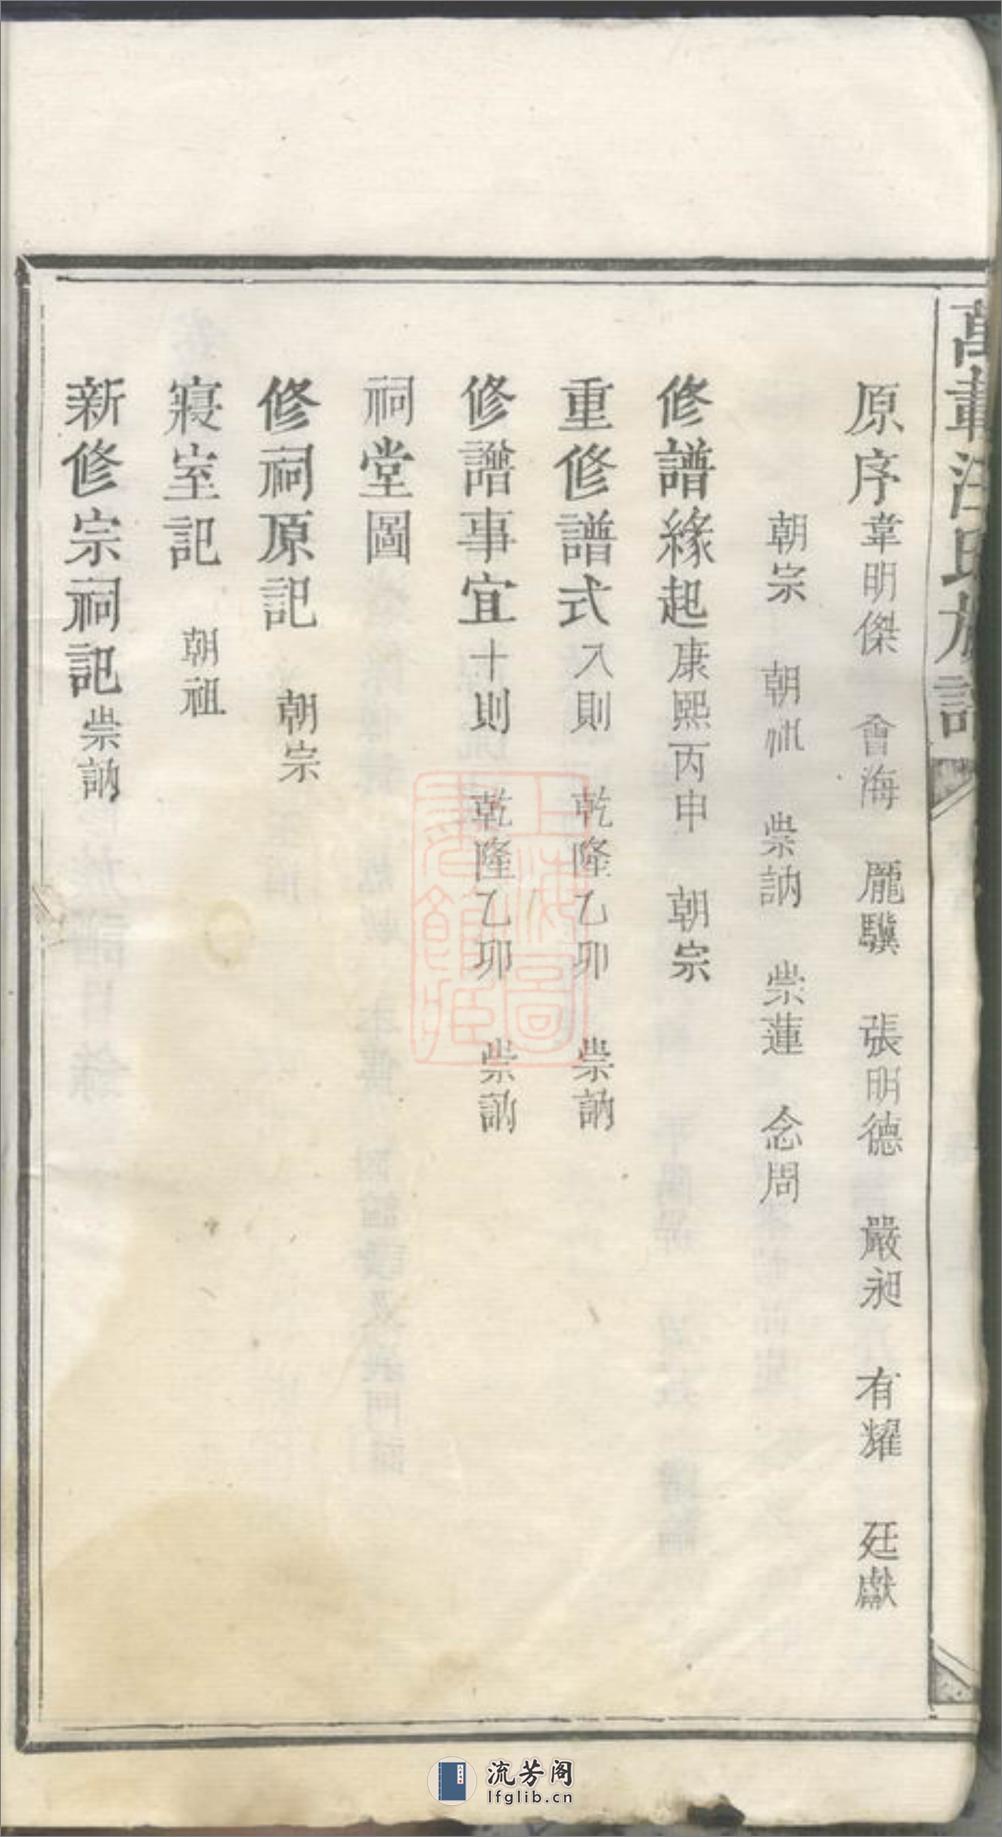 萬載汪氏族譜
原序 韋明傑 會海 龎驥 張明德 嚴昶 有耀 廷獻
朝宗 朝 崇訥 崇蓮 念周
修譜緣起 康熙丙申 朝宗
重修譜式 八則 乾隆乙卯 崇訥
修譜事宜 十則 乾隆乙卯 崇訥
祠堂圖
修祠原記 朝宗
寢室記 朝祖
新修宗祠記 崇訥
上海圖書館藏
流芳阁
lfglib.cn